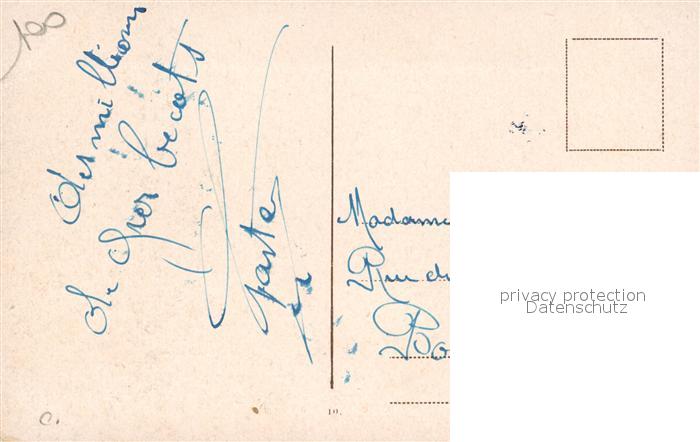 100
Des millions
de gros becots
Madame
Rue du
privacy protection
Datenschutz
10.
c.